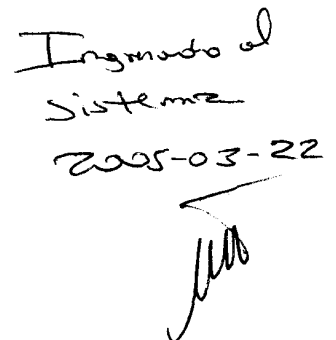 Ingresado al
sistema
2005-03-22